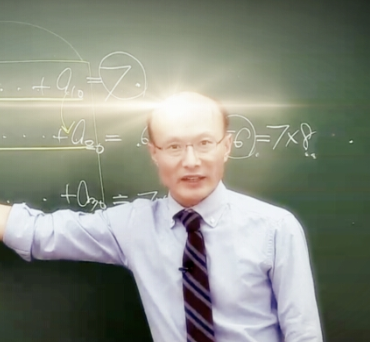 ·· + a₁₀ = 7.
··· + a₂₀ = 56 = 7×8
+ a₃₀ = 7